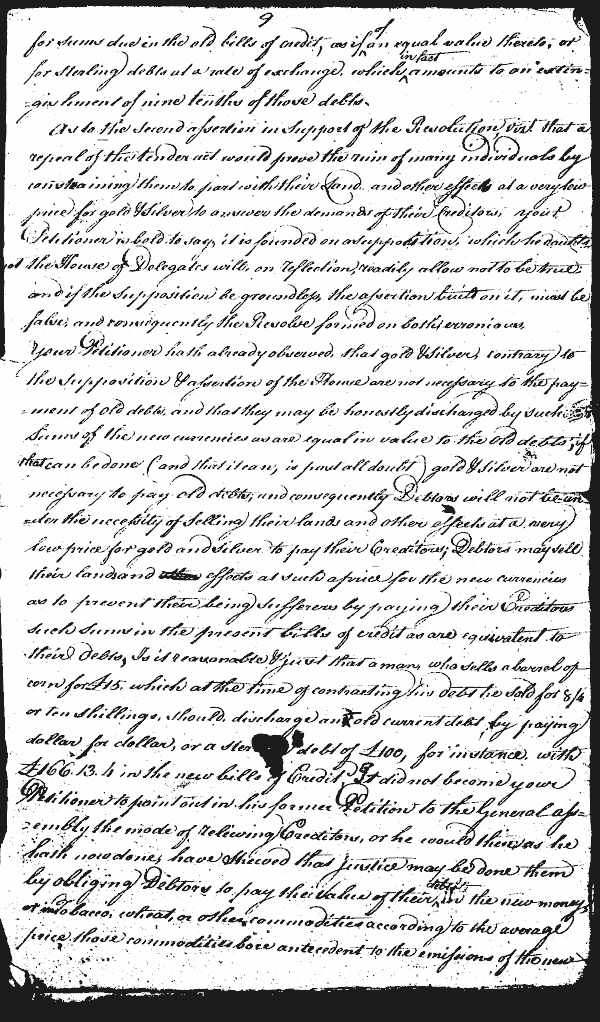 9
for sums due in the old bills of credit, as if of an equal value thereto, or
for sterling debts at a rate of exchange, which in fact amounts to an extin=
=gishment of nine tenths of those debts.
As to the second assertion in support of the Resolution, vizt. that a
repeal of the tender act would prove the ruin of many individuals by
constraining them to part with their Land, and other effects at a very low
price for gold & Silver to answer the demands of their Creditors, your
Petitioner is bold to say, it is founded on a supposition, which he doubts
not the House of Delegates will, on reflection, readily allow not to be true.
and if the supposition be groundless, the assertion built on it, must be
false, and consequently the Resolve formed on both, erronious,
Your Petitioner hath already observed, that gold & Silver, contrary to
the supposition & assertion of the House are not necessary to the pay=
=ment of old debts, and that they may be honestly discharged by such
Sums of the new currencies as are equal in value to the old debts; if
that can be done (and that it can, is past all doubt) gold & Silver are not
necessary to pay old debts, and consequently Debtors will not be un
=der the necessity of selling their lands and other effects at a very
low price for gold and silver to pay their Creditors; Debtors may sell
their lands and effects at such a price for the new currencies
as to prevent their being sufferers by paying their Creditors
such sums in the present bills of credit as are equivalent to
their debts, Is it reasonable & just that a man, who sells a barrel of
corn for £15, which at the time of contracting his debt he sold for 8/4
or ten shillings, should discharge an old current debt, by paying
dollar for dollar, or a ster debt of £100, for instance, with
£166.13.4 in the new bills of Credit It did not become your
Petitioner to point out in his former Petition to the General ass=
=embly the mode of relieving Creditors, or he would then, as he
hath now done, have shewed that justice may be done them
by obliging Debtors to pay the value of their debts in the new money,
or in Tobacco, wheat, or other commodities according to the average
price those commodities bore antecedent to the emissions of the new